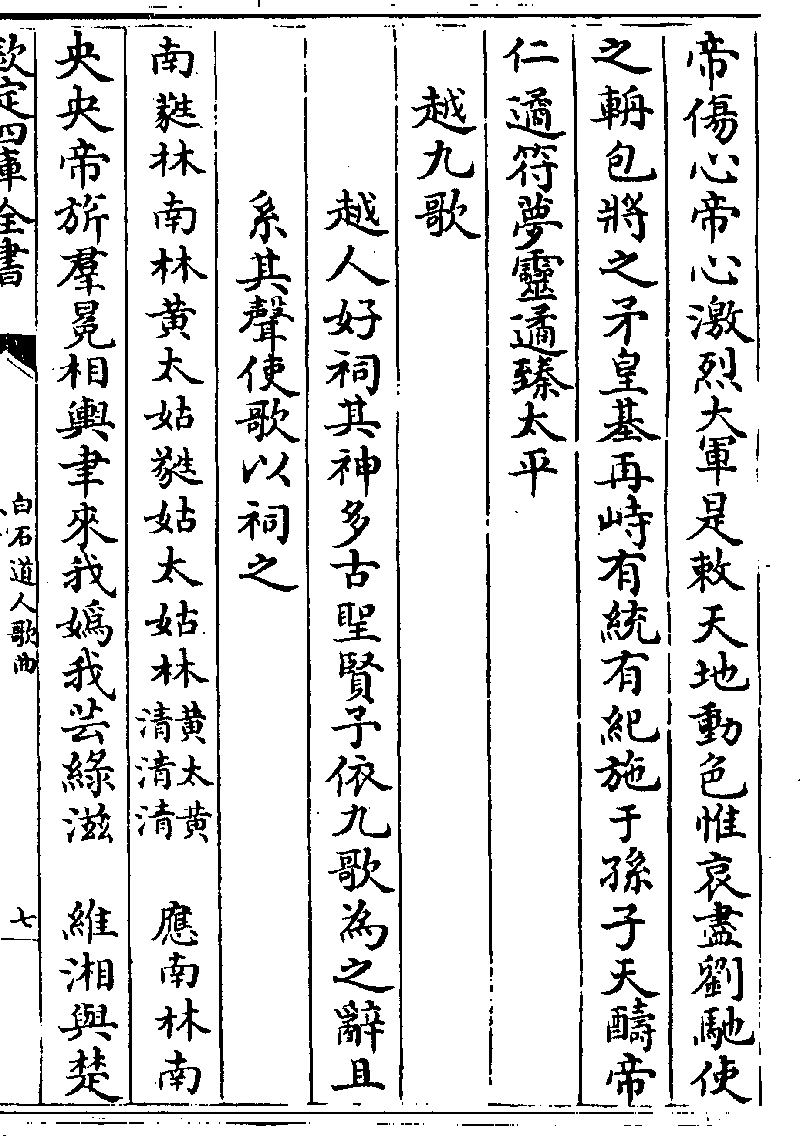 帝傷心帝心激烈大軍是敕天地動色惟哀盡劉馳使
之輈包將之矛皇基再峙有統有紀施于孫子天醻帝
仁遹符夢靈遹臻太平
越九歌
越人好祠其神多古聖賢予依九歌為之辭且
系其聲使歌以祠之
南蕤林南林黄太姑蕤姑太姑林黄清太清黄清 應南林南
央央帝旂羣冕相輿聿來我嬀我芸綠滋 維湘與楚
欽定四庫全書
白石道人歌曲
七